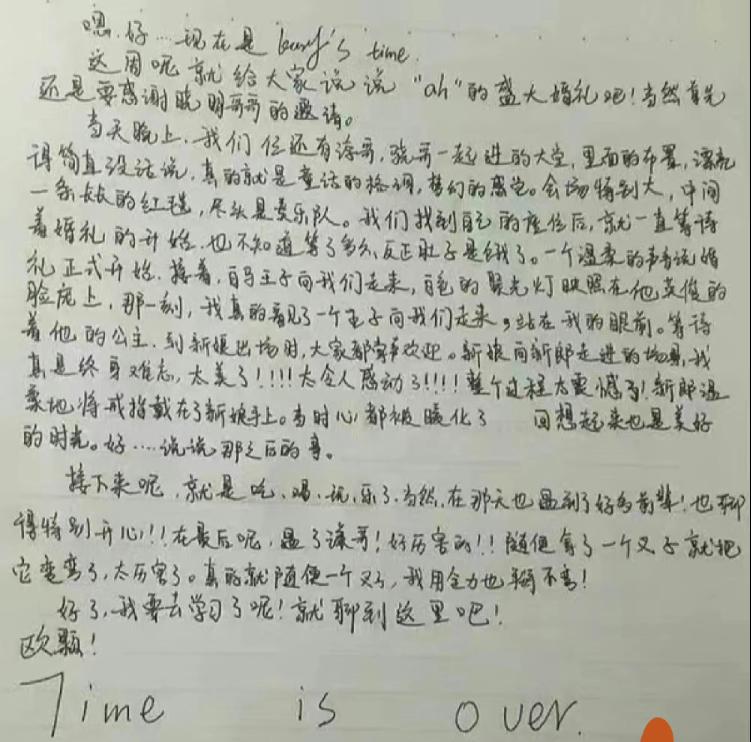 嗯，好……现在是 's time.
这周呢就给大家说说"ah"的盛大婚礼吧！当然首先
还是要感谢晓明哥哥的邀请。
当天晚上，我们位还有涛哥，骁哥一起进的大堂，里面的布置，漂亮
得简直没话说，真的就是童话的格调，梦幻的感觉。会场特别大，中间
一条长长的红毯，尽头是奏乐队。我们找到自己的座位后，就一直等待
着婚礼的开始，也不知道等了多久，反正肚子是饿了。一个温柔的声音说婚
礼正式开始，接着，白马王子向我们走来，白色的聚光灯映照在他英俊的
脸庞上，那一刻，我真的看见了一个王子向我们走来，站在我的眼前。等待
着他的公主，到新娘出场时，大家都掌声欢迎。新娘向新郎走进的场景，我
真是终身难忘，太美了！！！！太令人感动了！！！！整个过程太震憾了！新郎温
柔地将戒指戴在了新娘手上。当时心都被暖化了 回想起来也是美好
的时光。好……说说那之后的事。
接下来呢，就是吃、喝、玩、乐了，当然，在那天也遇到了好多前辈！也聊
得特别开心！！在最后呢，遇了 哥！好厉害的！！随便拿了一个叉子就把
它变弯了，太厉害了。真的就随便一个叉子，我用全力也掰不弯！
好了，我要去学习了呢！就聊到这里吧！
欧颗！
Time is over.